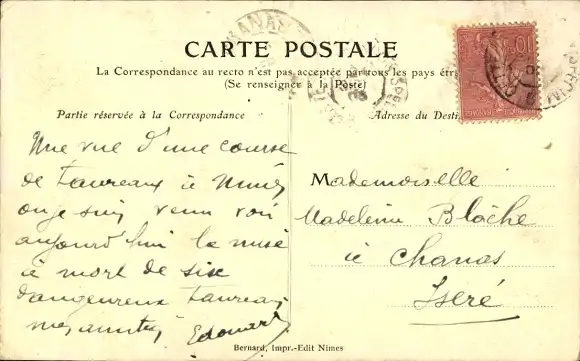 CARTE POSTALE
La Correspondance au recto n'est pas acceptée par tous les pays étr
(Se renseigner à la Poste)
Partie réservée à la Correspondance
Adresse du Desti
Une vue d'une course
de taureaux à Nimes
ou je suis venu voir
aujourd'hui la mise
à mort de six
dangeureux taureaux
mes amitiés Edouard
Mademoiselle
Madeleine Blache
à Chanas
Iseré
10
CHANAS
Bernard, Impr.-Edit Nimes